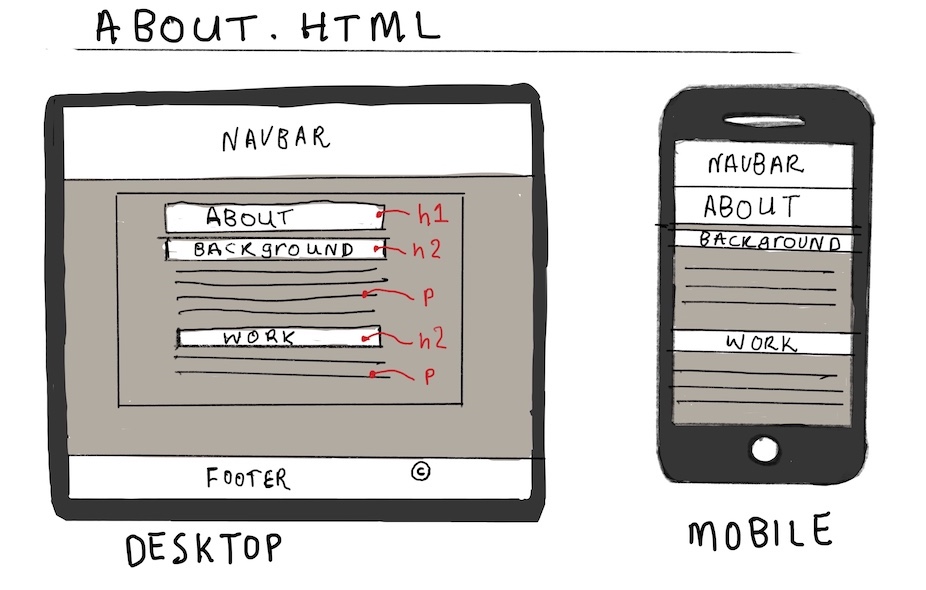 ABOUT.HTML
NAVBAR
ABOUT
h1
BACKGROUND
h2
P
WORK
h2
P
FOOTER
©
DESKTOP
NAVBAR
ABOUT
BACKGROUND
WORK
MOBILE